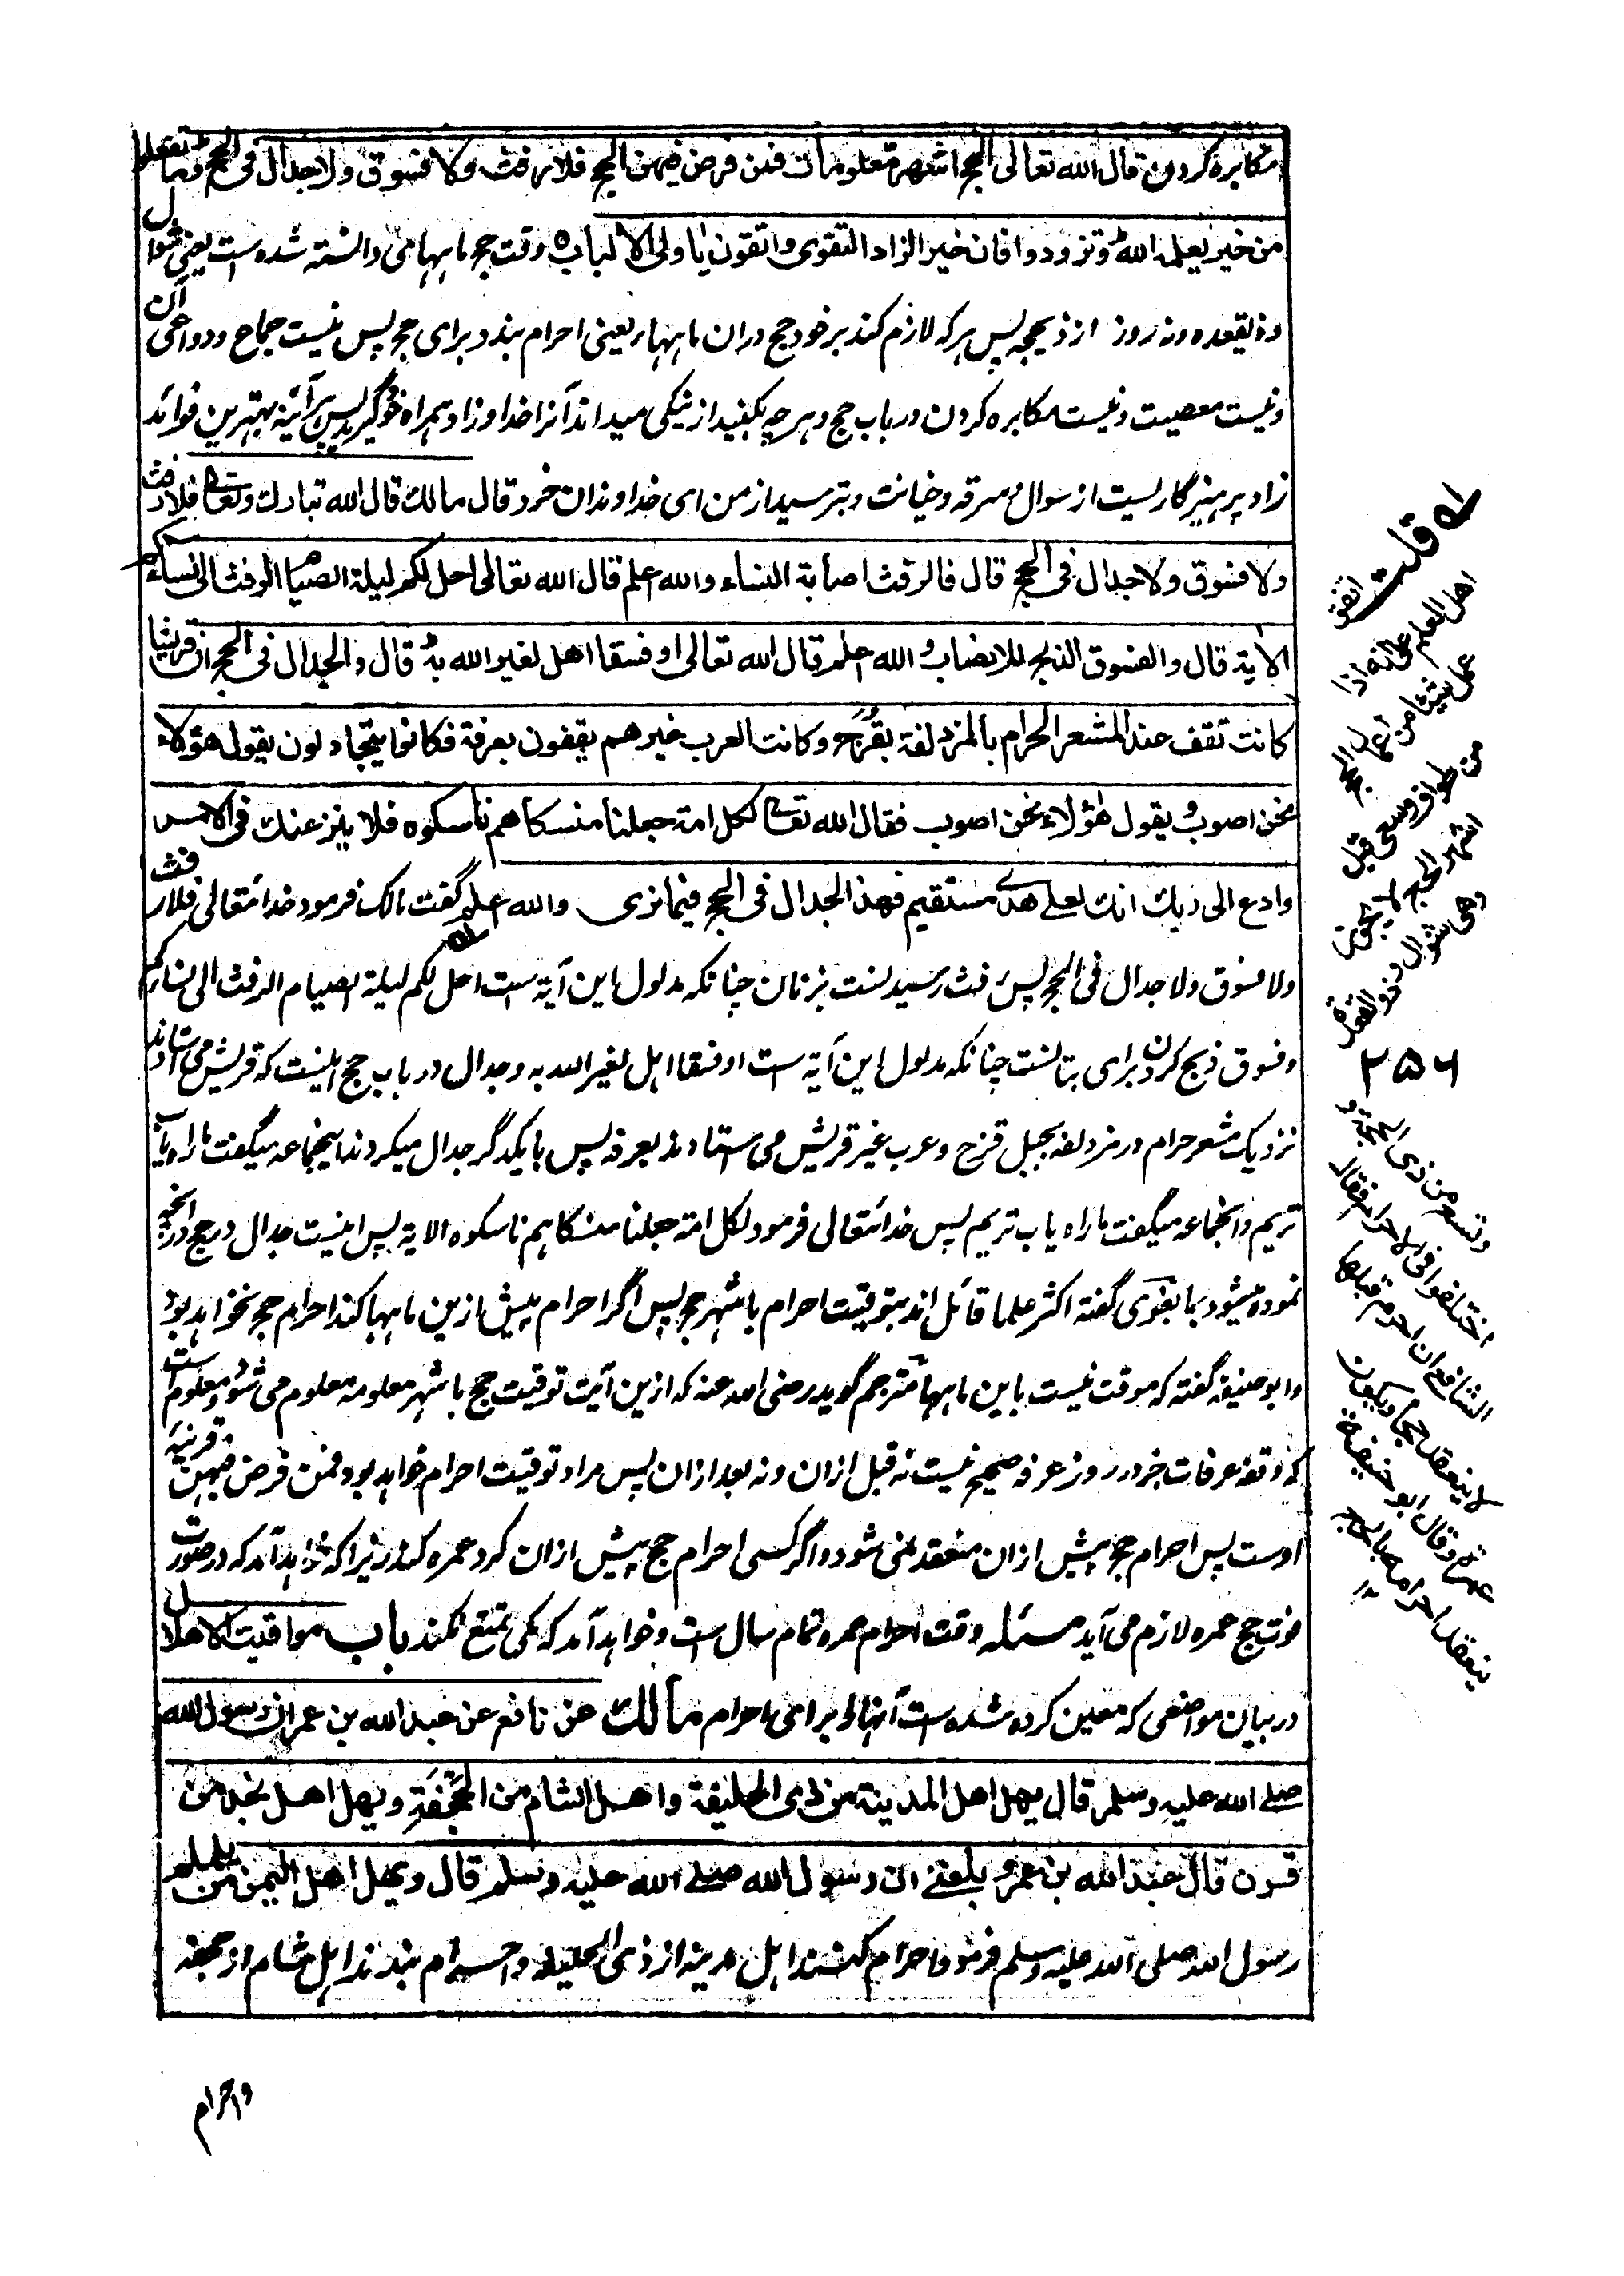 مکابره کردن قال الله تعالی الحج اشهر معلومات فمن فرض فیهن الحج فلا رفث ولا فسوق ولا جدال فی الحج وما تفعلوا
من خیر یعلمه الله وتزودوا فان خیر الزاد التقوی واتقون یا اولی الالباب وقت حج ماههای دانسته شده است یعنی شوال
وذیقعده ونه روز از ذیحجه پس هرکه لازم کند برخود حج دران ماهها یعنی احرام بندد برای حج پس نیست جماع ودواعی آن
ونیست معصیت ونیست مکابره کردن در باب حج وهرچه بکنید از نیکی میداند آنرا خدا وزاد همراه خود گیرید پس هر آئینه بهترین فوائد
زاد پرهیزگاریست از سوال وسرقه وخیانت وبترسید از من ای خداوندان خرد قال مالك قال الله تبارك وتعالی فلا رفث
ولا فسوق ولا جدال فی الحج قال فالرفث اصابة النساء والله اعلم قال الله تعالی احل لکم لیلة الصیام الرفث الی نسائکم
الایة قال والفسوق الذبح للانصاب والله اعلم قال الله تعالی او فسقا اهل لغیر الله به قال والجدال فی الحج ان قریشا
کانت تقف عند المشعر الحرام بالمزدلفة بقزح وکانت العرب غیرهم یقفون بعرفة فکانوا یتجادلون یقول هؤلاء
نحن اصوب ویقول هؤلاء نحن اصوب فقال الله تعالی لکل امة جعلنا منسکا هم ناسکوه فلا ینازعنك فی الامر
وادع الی ربك انك لعلی هدی مستقیم فهذا الجدال فی الحج فیما نری والله اعلم گفت مالک فرمود خدا تعالی فلا رفث
ولا فسوق ولا جدال فی الحج پس رفث رسیدنست بزنان چنانکه مدلول این آیة ست احل لکم لیلة الصیام الرفث الی نسائکم
وفسوق ذبح کردن برای بتانست چنانکه مدلول این آیة ست او فسقا اهل لغیر الله به وجدال در باب حج اینست که قریش می استادند
نزدیک مشعر حرام در مزدلفه بجبل قزح وعرب غیر قریش می استادند بعرفه پس با یکدگر جدال میکردند اینجماعه میگفت ما راه یاب
تریم وآنجماعه میگفت ما راه یاب تریم پس خدا تعالی فرمود لکل امة جعلنا منسکا هم ناسکوه الایة پس اینست جدال در حج در آنچه
نموده میشود بما بغوی گفته اکثر علما قائل اند بتوقیت احرام باشهر حج پس اگر احرام پیش ازین ماهها کند احرام حج نخواهد بود
وابو حنیفه گفته که موقت نیست باین ماهها مترجم گوید رضی الله عنه که ازین آیت توقیت حج باشهر معلومه معلوم می شود ومعلوم است
که وقفه عرفات جز در روز عرفه صحیح نیست نه قبل ازان ونه بعد ازان پس مراد توقیت احرام خواهد بود فمن فرض فیهن قرینه
اوست پس احرام حج پیش ازان منعقد نمی شود واگر کسی احرام حج پیش ازان کرد عمره کند زیرا که خواهد آمد که در صورت
فوت حج عمره لازم می آید مسئله وقت احرام عمره تمام سال ست وخواهد آمد که مکی تمتع نکند باب مواقیت الاهلال
در بیان مواضعی که معین کرده شده است آنها را برای احرام مالك عن نافع عن عبد الله بن عمر ان رسول الله
صلی الله علیه وسلم قال یهل اهل المدینة من ذی الحلیفة واهل الشام من الجحفة ویهل اهل نجد من
قرن قال عبد الله بن عمر وبلغنی ان رسول الله صلی الله علیه وسلم قال ویهل اهل الیمن من یلملم
رسول الله صلی الله علیه وسلم فرمود احرام کنند اهل مدینه از ذی الحلیفه واحرام بندند اهل شام از جحفه
واحرام
له قلت اتفق
اهل العلم علی انه اذا
عمل شیئا من اعمال الحج
من طواف وسعی قبل
اشهر الحج لا یجزی
وهی شوال وذو القعدة
۲۵۶
وتسع من ذی الحجة و
اختلفوا فی الاحرام فقال
الشافعی ان احرم قبلها
لا ینعقد حجا ویکون
عمرة وقال ابو حنیفة
ینعقد احرامه بالحج
۱۲